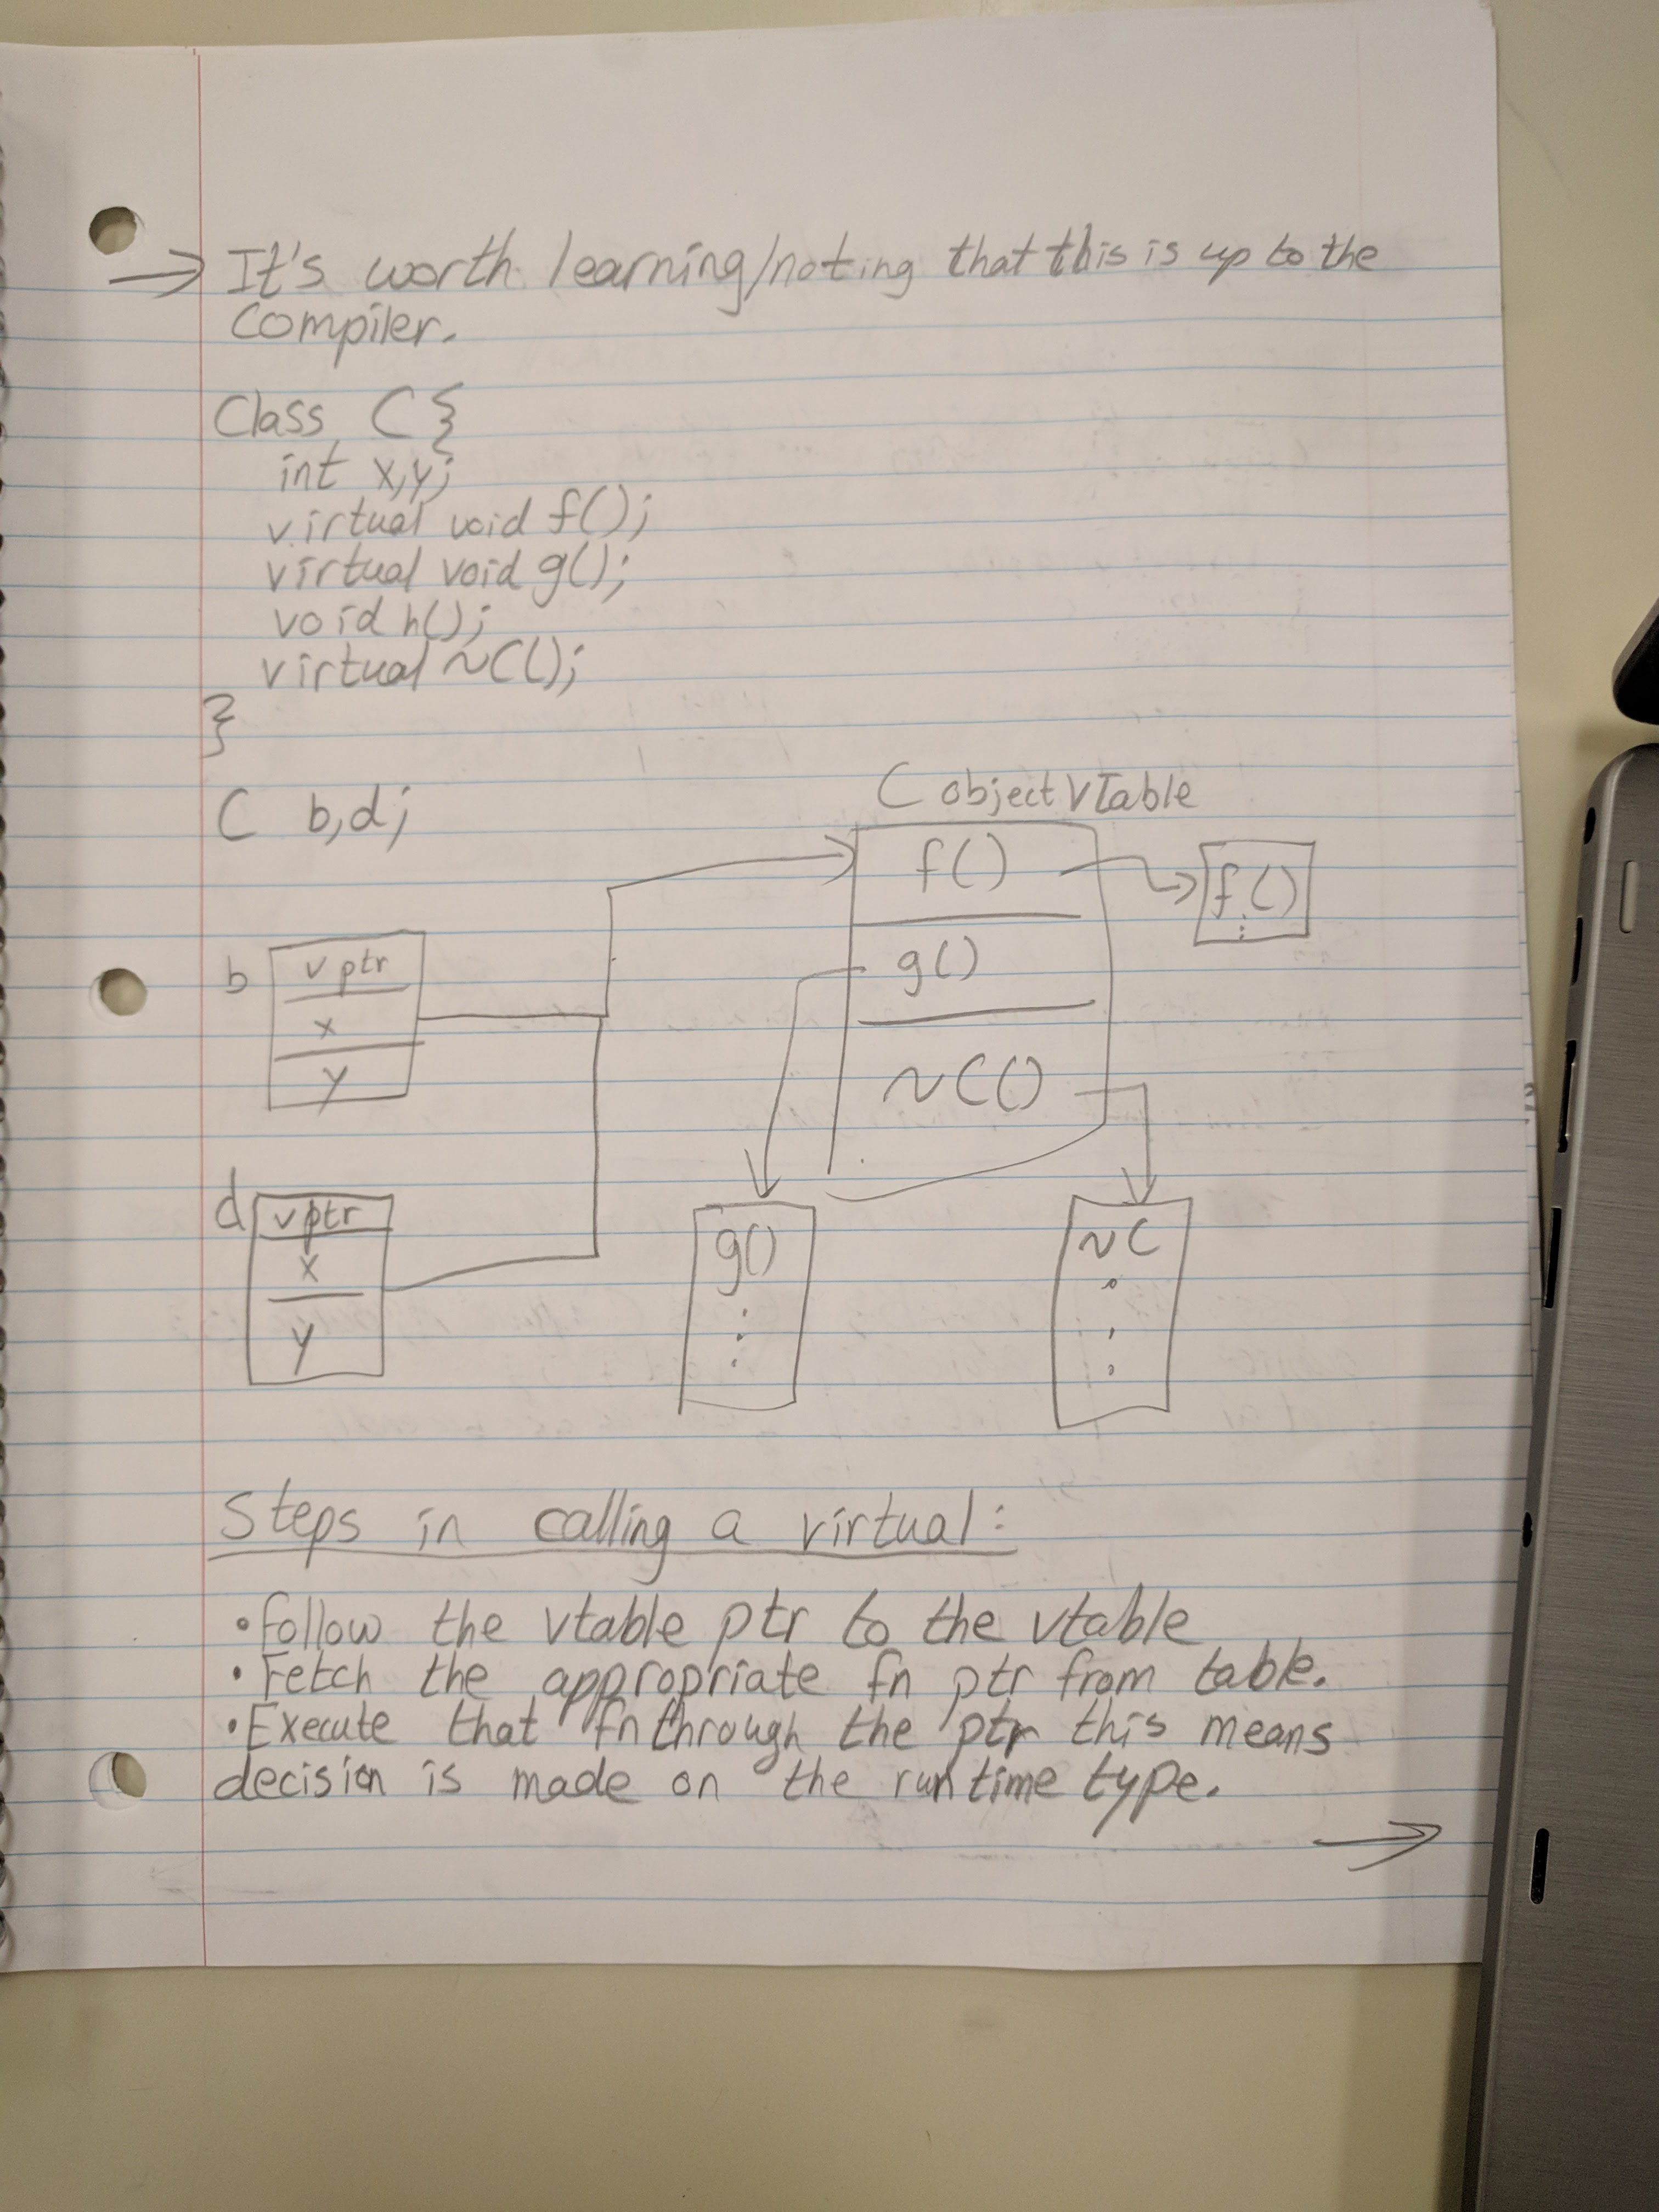 → It's worth learning/noting that this is up to the
Compiler.
Class C {
int x,y;
virtual void f();
virtual void g();
void h();
virtual ~C();
}
C b,d;
C object vTable
f()
f()
g()
~C()
b
vptr
x
y
d
vptr
x
y
g()
~C
Steps in calling a virtual:
• Follow the vtable ptr to the vtable
• Fetch the appropriate fn ptr from table.
• Execute that fn through the ptr this means
decision is made on the runtime type.
→